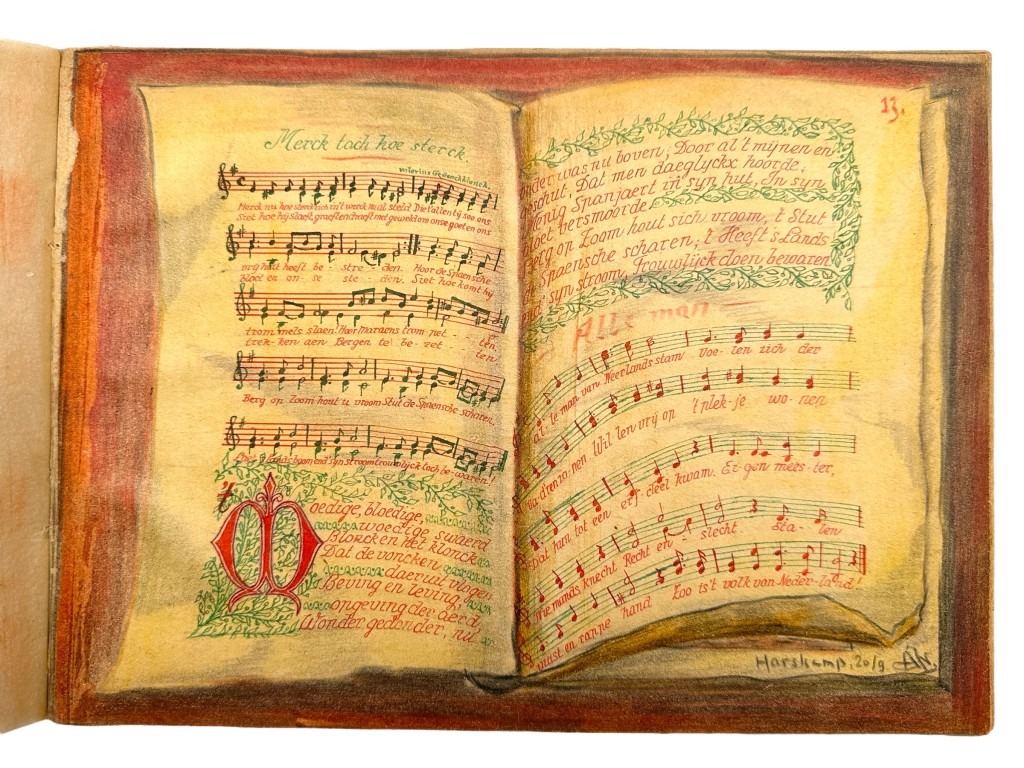 Merck toch hoe sterck.
Valerius Gedenckklanck.
Merck nu hoe sterck sich in't werck
Siet hoe hij slaeft, graeft en draeft met gewelt om onse goet en ons
vrijheit heeft be- stre- den. Hoor de Spaensche
bloet en on- se ste- den. Siet hoe komt hij
trom mels slaen! Hoor Maraens trom pet- ten,
trek- ken aen Bergen te be- zet- ten
Berg op Zoom hout u vroom Stut de Spaensche scharen,
Laet 's lands boom end' sijn stroom trouwlijck toch be- waren!
Moedige, bloedige,
woedige swaerd
Blonck en het klonck
Dat de voncken
daeruit vlogen
Beving en leving,
opgeving der aerd,
Wonder gedonder, nu
13.
onder was nu boven; Door al 't mijnen en
geschut, Dat men daeglyckx hoorde;
Menig Spanjaert in syn hut, In syn
bloet versmoorde.
Berg op Zoom hout sich vroom, 't Stut
de Spaensche scharen; 't Heeft 's Lands
end' syn stroom, Trouwlijck doen bewaren
Alle man
al- le man van Neerlands stam Voe- len zich der
va- dren zo- nen Wil len vrij op 't plek- je wo- nen
Dat hun tot een erf- deel kwam. Ei- gen mees- ter,
nie mands knecht Recht en slecht Sta- len
vuist en ranne hand Zoo is't volk van Neder- land!
Harskamp, 20/9. AN